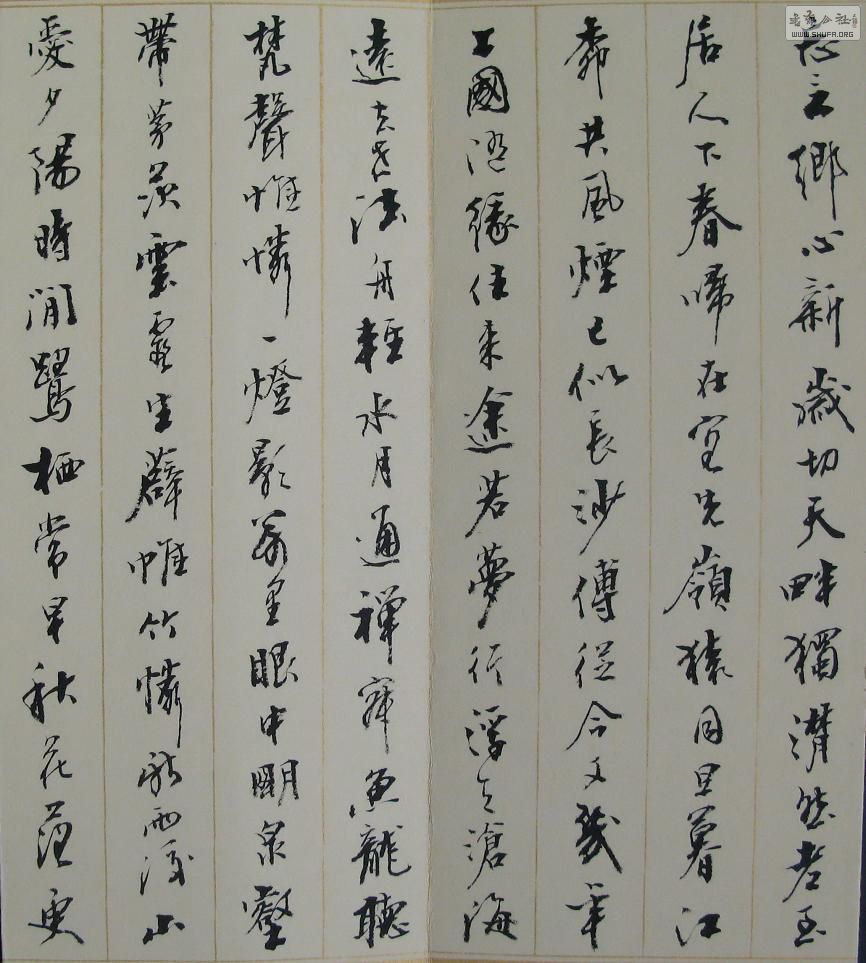 忘言鄉心新歲切天畔獨潸然老至
居人下春歸在客先嶺猿同旦暮江
柳共風煙已似長沙傅從今又幾年
上國隨緣住來途若夢行浮天滄海
遠去世法舟輕水月通禪寂魚龍聽
梵聲惟憐一燈影萬里眼中明泉壑
帶茅茨雲霞生薜帷竹憐新雨後山
愛夕陽時閒鷺栖常早秋花落更
WWW.SHUFA.ORG